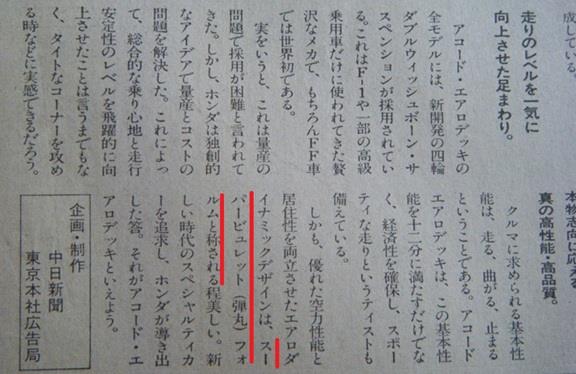 成している。
走りのレベルを一気に
向上させた足まわり。
アコード・エアロデッキの
全モデルには、新開発の四輪
ダブルウィッシュボーン・サ
スペンションが採用されてい
る。これはF-1や一部の高級
乗用車だけに使われてきた贅
沢なメカで、もちろんFF車
では世界初である。
実をいうと、これは量産の
問題で採用が困難と言われて
きた。しかし、ホンダは独創的
なアイデアで量産とコストの
問題を解決した。これによっ
て、総合的な乗り心地と走行
安定性のレベルを飛躍的に向
上させたことは言うまでもな
く、タイトなコーナーを攻め
る時などに実感できるだろう。
本物志向に応える
真の高性能・高品質。
クルマに求められる基本性
能は、走る、曲がる、止まる
ということである。アコード
エアロデッキは、この基本性
能を十二分に満たすだけでな
く、経済性を確保し、スポー
ティな走りというテイストも
備えている。
しかも、優れた空力性能と
居住性を両立させたエアロダ
イナミックデザインは、スー
パービュレット(弾丸)フォ
ルムと称される程美しい。新
しい時代のスペシャルティカ
ーを追求し、ホンダが導き出
した答。それがアコード・エ
アロデッキといえよう。
企画・制作
中日新聞
東京本社広告局